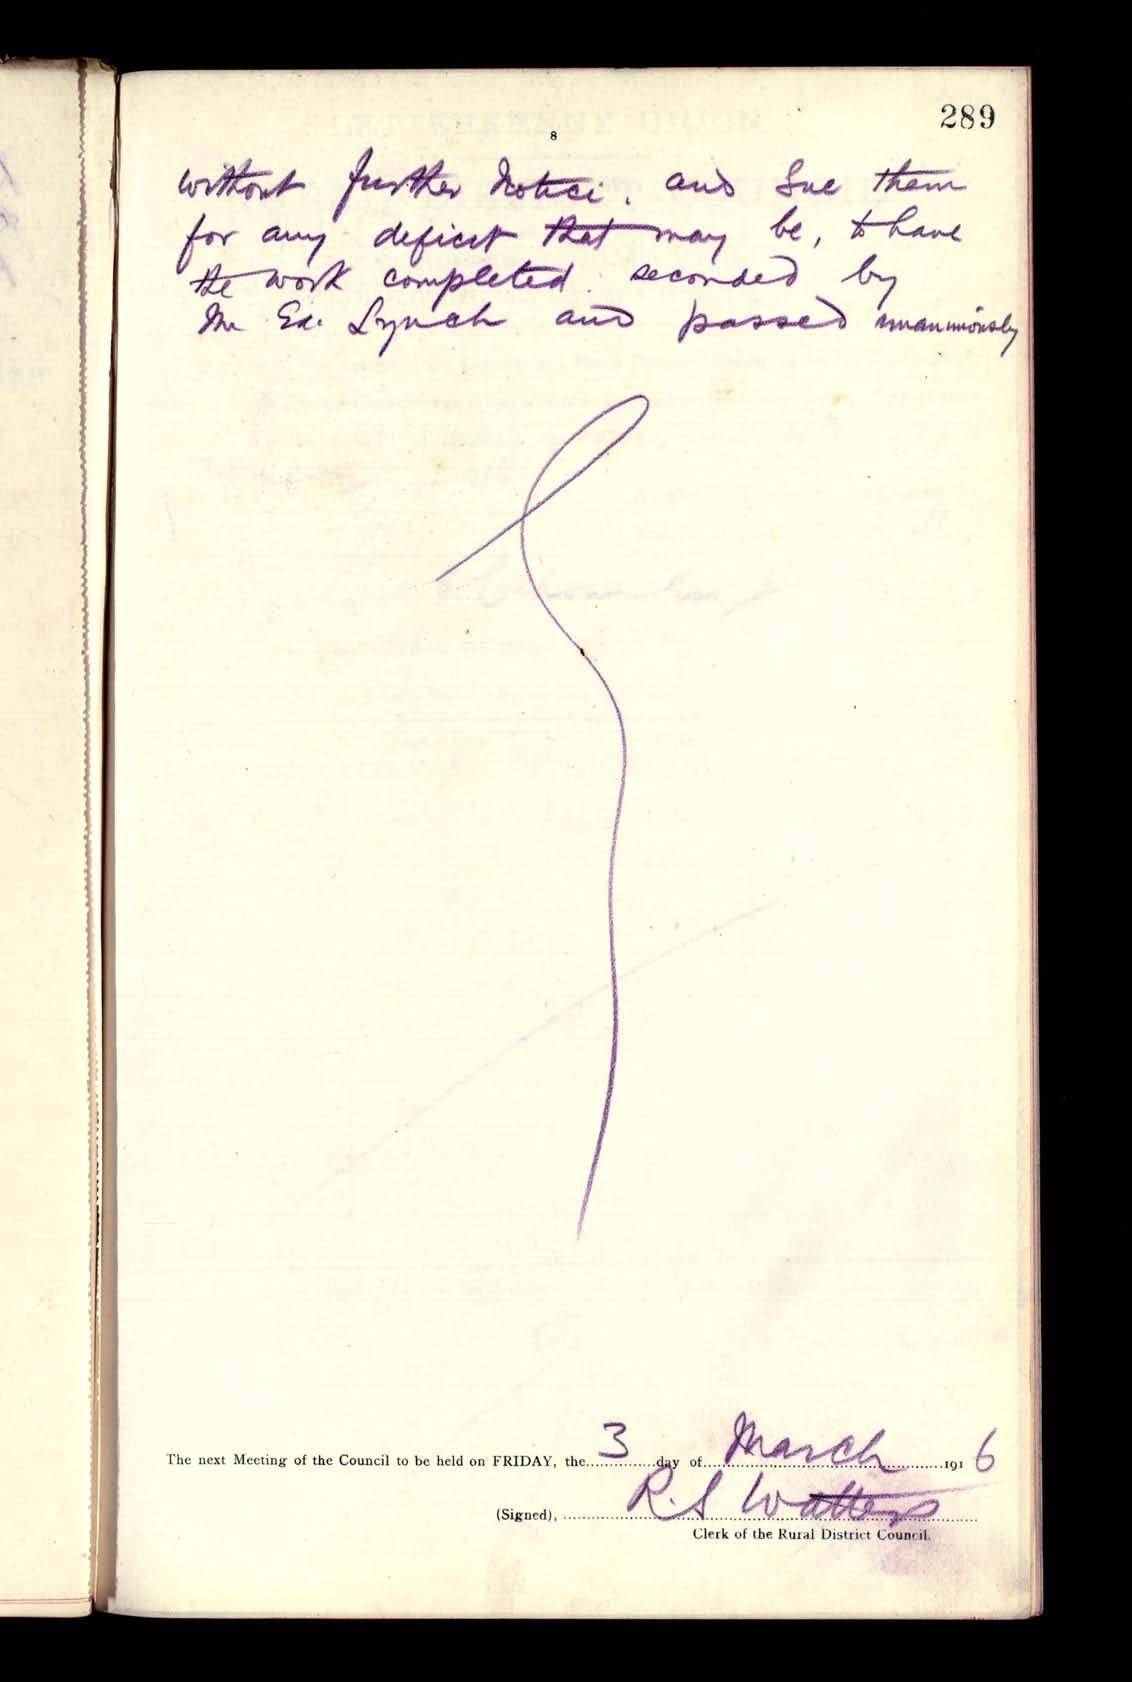 289
8
without further Notice. and Sue them
for any deficit that may be, to have
the work completed. seconded by
Mr Ed. Lynch and passed unanimously
The next Meeting of the Council to be held on FRIDAY, the 3 day of March 1916
(Signed), R. S Watters
Clerk of the Rural District Council.